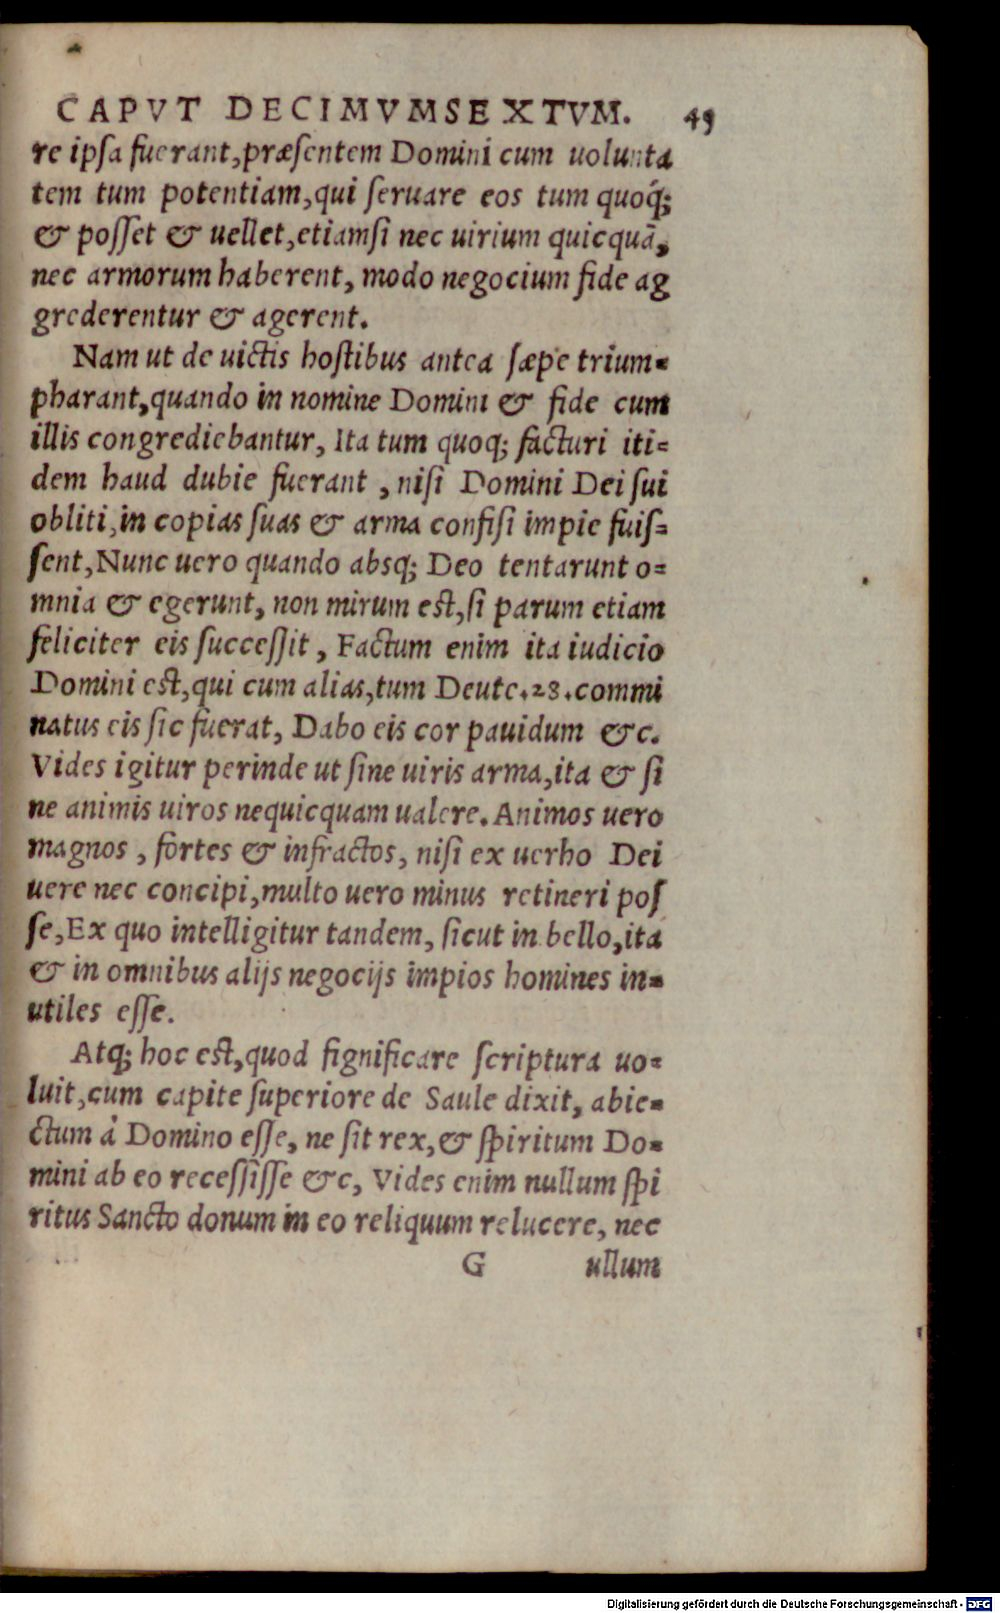 CAPVT DECIMVMSEXTVM. 49
re ipſa fuerant,præſentem Domini cum uolunta
tem tum potentiam,qui ſeruare eos tum quoq́;
& poſſet & uellet,etiamſi nec uirium quicquã,
nec armorum haberent, modo negocium fide ag
grederentur & agerent.
Nam ut de uictis hoſtibus antea ſæpe trium-
pharant,quando in nomine Domini & fide cum
illis congrediebantur, Ita tum quoq; facturi iti-
dem haud dubie fuerant , niſi Domini Dei ſui
obliti,in copias ſuas & arma confiſi impie fuiſ-
ſent,Nunc uero quando absq; Deo tentarunt o-
mnia & egerunt, non mirum est,ſi parum etiam
feliciter eis ſucceſſit , Factum enim ita iudicio
Domini est,qui cum alias,tum Deute.28.commi
natus eis ſic fuerat, Dabo eis cor pauidum &c.
Vides igitur perinde ut ſine uiris arma,ita & ſi
ne animis uiros nequicquam ualere. Animos uero
magnos , fortes & infractos, niſi ex uerho Dei
uere nec concipi,multo uero minus retineri poſ
ſe,Ex quo intelligitur tandem, ſicut in bello,ita
& in omnibus alijs negocijs impios homines in-
utiles eſſe.
Atq; hoc est,quod ſignificare ſcriptura uo-
luit,cum capite ſuperiore de Saule dixit, abie-
ctum á Domino eſſe, ne ſit rex,& ſpiritum Do-
mini ab eo receſſiſſe &c, Vides enim nullum ſpi
ritus Sancto donum in eo reliquum relucere, nec
G ullum
Digitalisierung gefördert durch die Deutsche Forschungsgemeinschaft - DFG